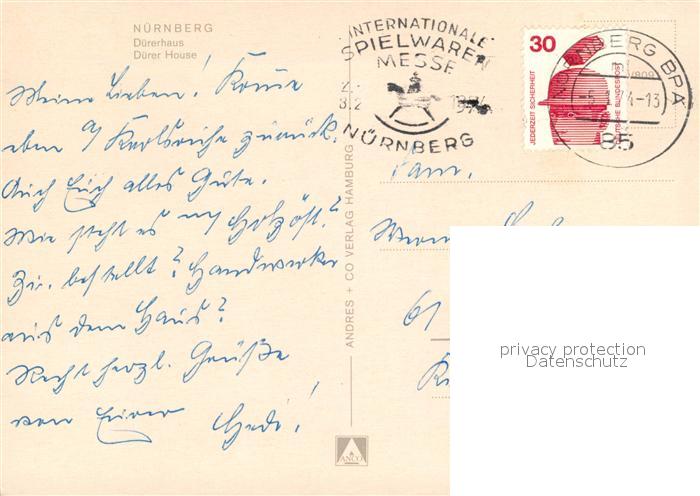 NÜRNBERG
Dürerhaus
Dürer House
INTERNATIONALE
SPIELWAREN
MESSE
1974
NÜRNBERG
30
JEDERZEIT SICHERHEIT
DEUTSCHE BUNDESPOST
NÜRNBERG BPA
-5.1.74-13
85
Meine Lieben! Komme
eben v/ Karlsruhe zurück.
Auch Euch alles Gute.
Wie steht es m/
bestellt? Handwerker
aus dem Haus?
Recht herzl. Grüße
von Eurer Hedi!
Fam.
61
ANDRES + CO VERLAG HAMBURG
ANCO
privacy protection
Datenschutz